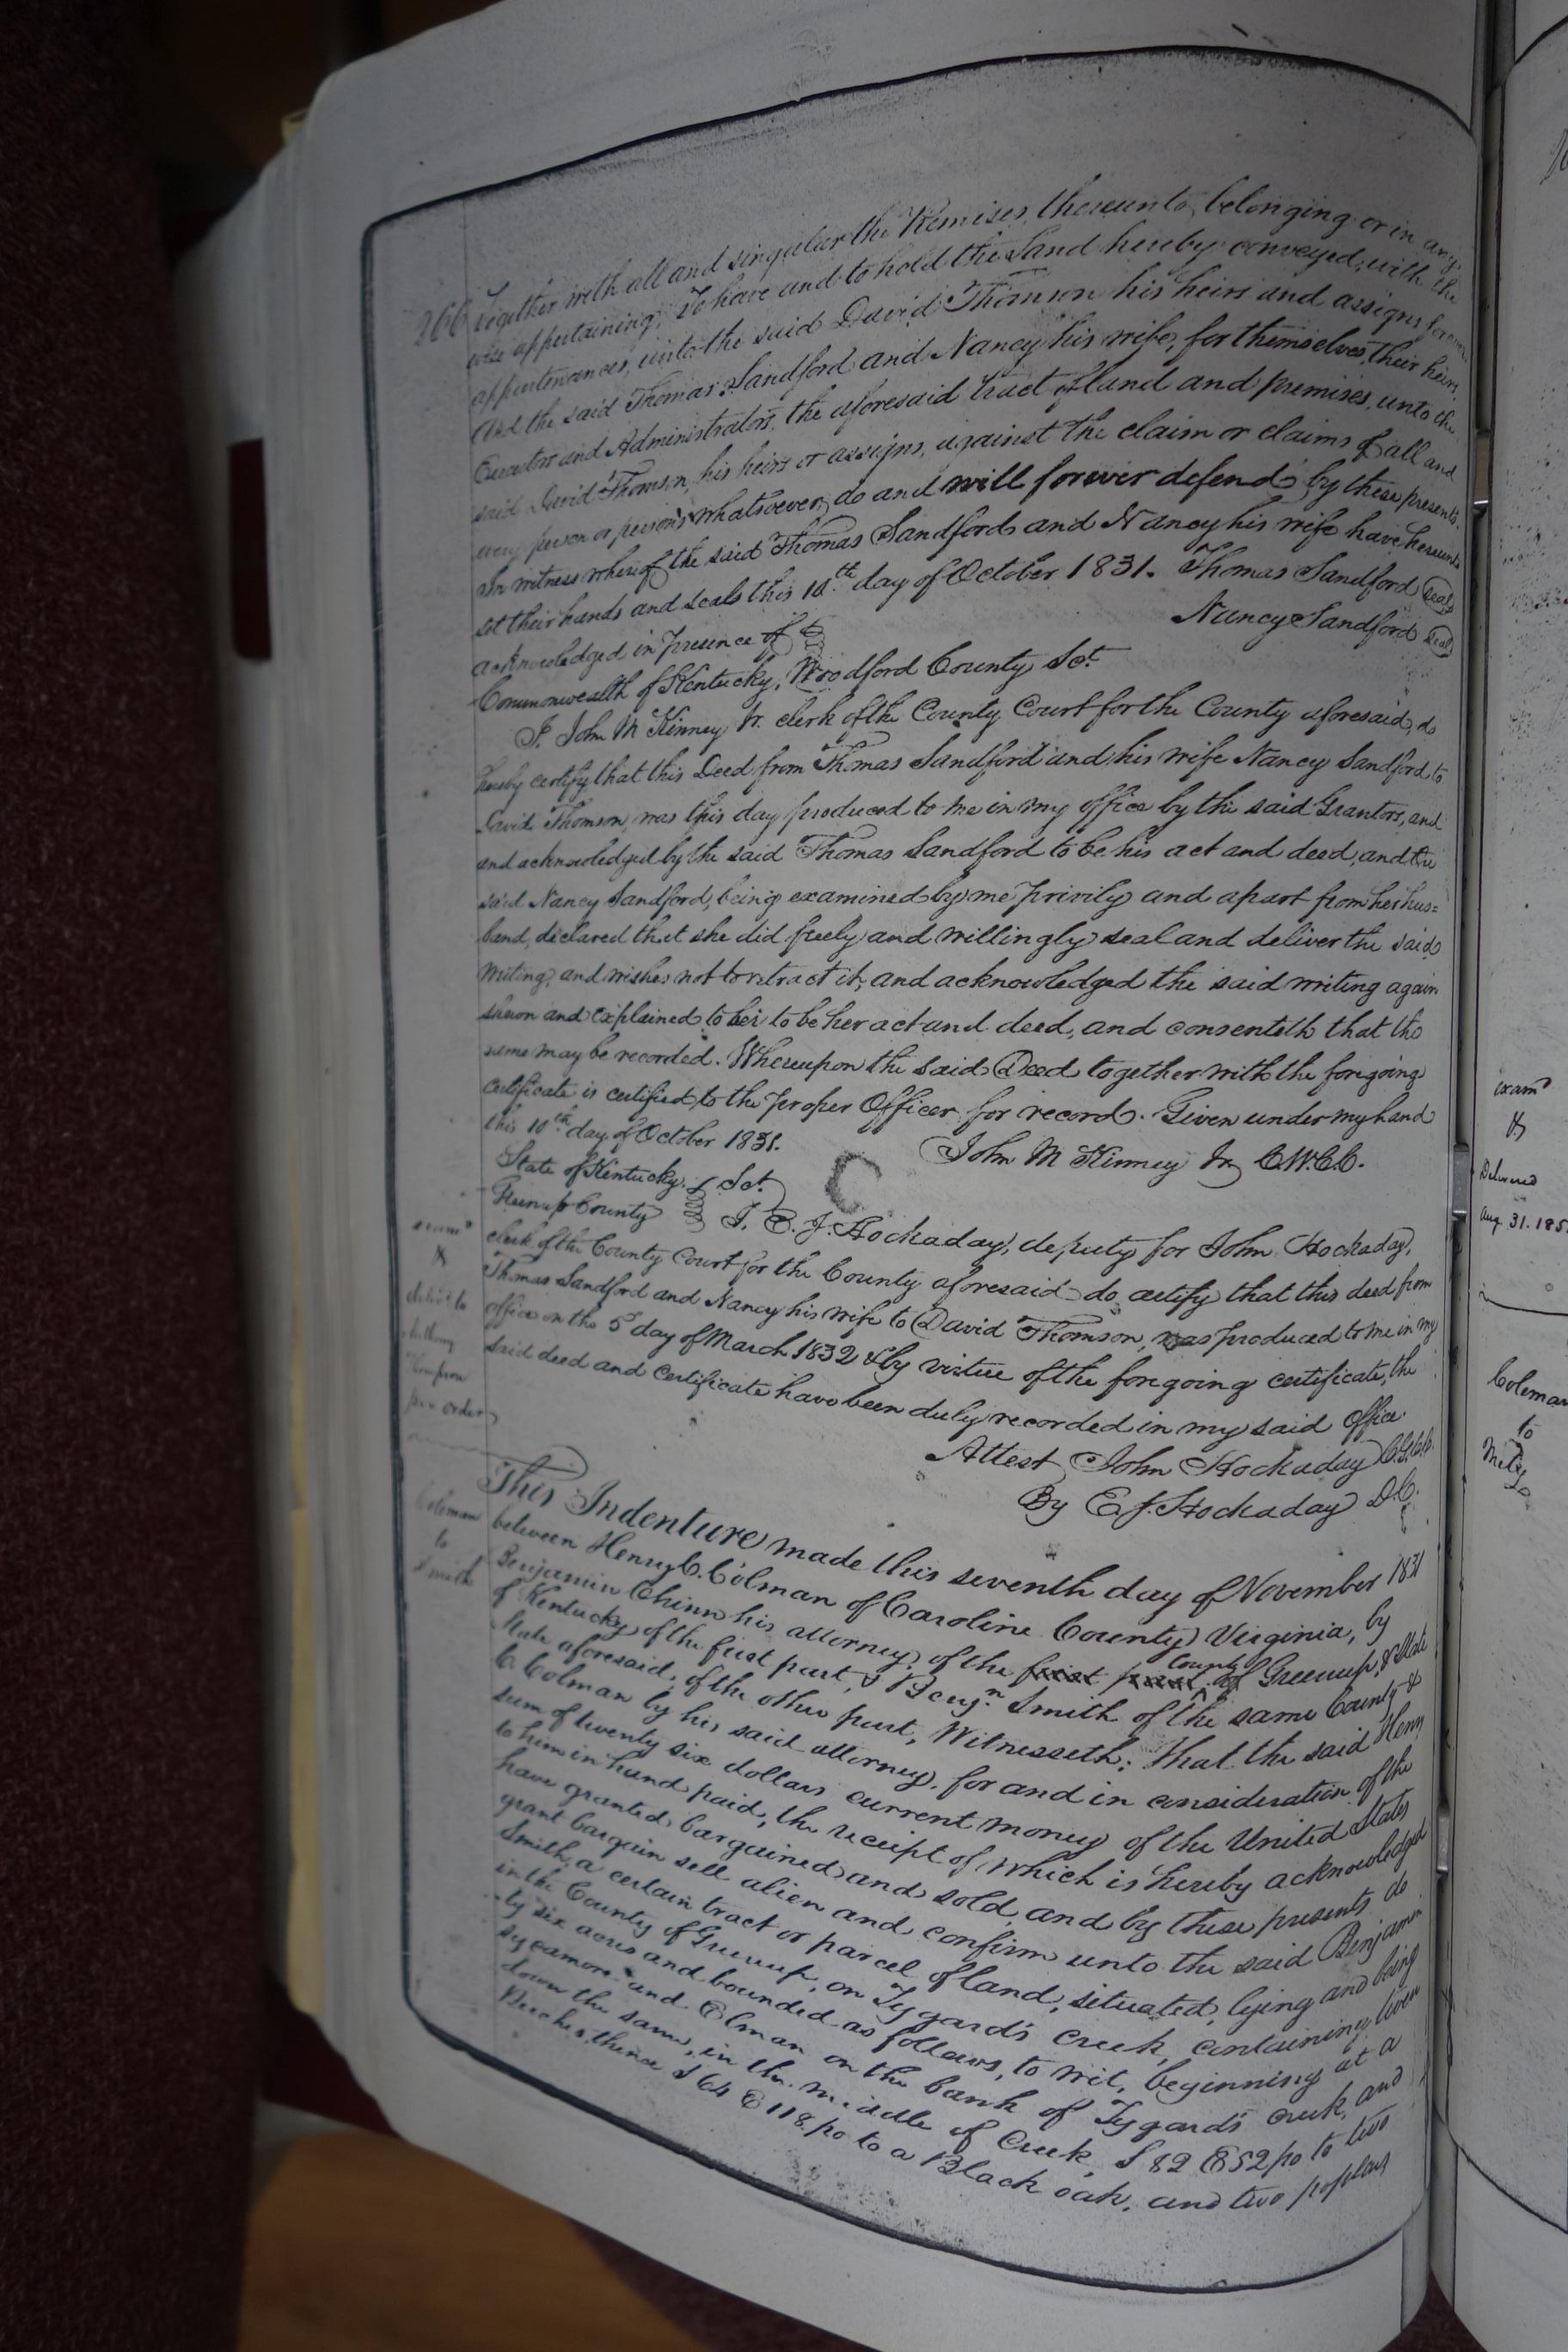 266 Together with all and singular the Premises, thereunto, belonging or in any
wise appertaining. To have and to hold the Land hereby conveyed, with the
appurtenances, unto the said David Thomson his heirs and assigns forever
And the said Thomas Sandford and Nancy his wife, for themselves, their heirs,
Executors and Administrators, the aforesaid tract of land and premises, unto the
said David Thomson, his heirs or assigns, against the claim or claims of all and
every person or persons whatsoever, do and will forever defend by these presents.
In witness whereof the said Thomas Sandford and Nancy his wife have hereunto
set their hands and seals this 10th day of October 1831. Thomas Sandford (Seal)
Nancy Sandford (Seal)
acknowledged in presence of
Commonwealth of Kentucky, Woodford County Sct.
I. John M Kinney Jr. clerk of the County Court for the County aforesaid, do
hereby certify that this Deed from Thomas Sandford and his wife Nancy Sandford to
David Thomson, was this day produced to me in my office by the said Grantors, and
and acknowledged by the said Thomas Sandford to be his act and deed, and the
said Nancy Sandford, being examined by me privily and apart from her hus=
band, declared that she did freely and willingly seal and deliver the said
writing, and wishes not to retract it, and acknowledged the said writing again
shewn and explained to her to be her act and deed, and consenteth that the
same may be recorded. Whereupon the said Deed together with the foregoing
certificate is certified to the proper Officer for record. Given under my hand
this 10th day of October 1831.
John M Kinney Jr C.W.C.C.
State of Kentucky
Greenup County Sct.
I. E. J. Hockaday, deputy for John Hockaday,
clerk of the County Court for the County aforesaid do certify that this deed from
Thomas Sandford and Nancy his wife to David Thomson, was produced to me in my
office on the 5 day of March 1832 & by virtue of the foregoing certificate, the
said deed and certificate have been duly recorded in my said office.
Attest John Hockaday C.G.C.C.
By E. J. Hockaday D.C.
exam
&
deliv'd to
per order
Coleman
to
Smith
This Indenture made this seventh day of November 1831
between Henry C. Colman of Caroline County Virginia, by
Benjamin Chinn his attorney, of the first part County of Greenup, & State
of Kentucky of the first part, & Benjn. Smith of the same County &
State aforesaid, of the other part, Witnesseth: that the said Henry
C. Colman by his said attorney, for and in consideration of the
sum of twenty six dollars current money of the United States
to him in hand paid, the receipt of which is hereby acknowledged
have granted, bargained and sold, and by these presents do
grant bargain sell alien and confirm unto the said Benjamin
Smith, a certain tract or parcel of land, situated, lying and being
in the County of Greenup, on Tygard's Creek, containing
ty six acres and bounded as follows, to wit, beginning at a
sycamore and Elman on the bank of Tygard's creek, and
down the same, in the middle of Creek, S 82 E 52 po to two
Beeches, thence S 64 E 118 po to a Black oak, and two poplars
exam'd
&
Delivered
Aug. 31. 185
Coleman
to